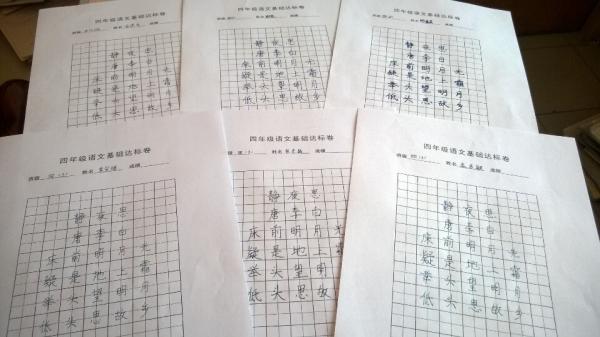 四年级语文基础达标卷
班级 姓名 成绩
静夜思
唐李白
床前明月
疑是地上
举头望明
低头思故
四年级语文基础达标卷
班级 姓名 成绩
静夜思
唐李白
床前明月
疑是地上
举头望明
低头思故
四年级语文基础达标卷
班级 姓名 成绩
静夜思
唐李白
床前明月光
疑是地上霜
举头望明月
低头思故乡
四年级语文基础达标卷
班级 四(3) 姓名 成绩
静夜思
唐李白
床前明月光
疑是地上霜
举头望明月
低头思故乡
四年级语文基础达标卷
班级 姓名 成绩
静夜思
唐李白
床前明月光
疑是地上
举头望明
低头思故
四年级语文基础达标卷
班级 四(3) 姓名 成绩
静夜思
唐李白
床前明月光
疑是地上霜
举头望明月
低头思故乡